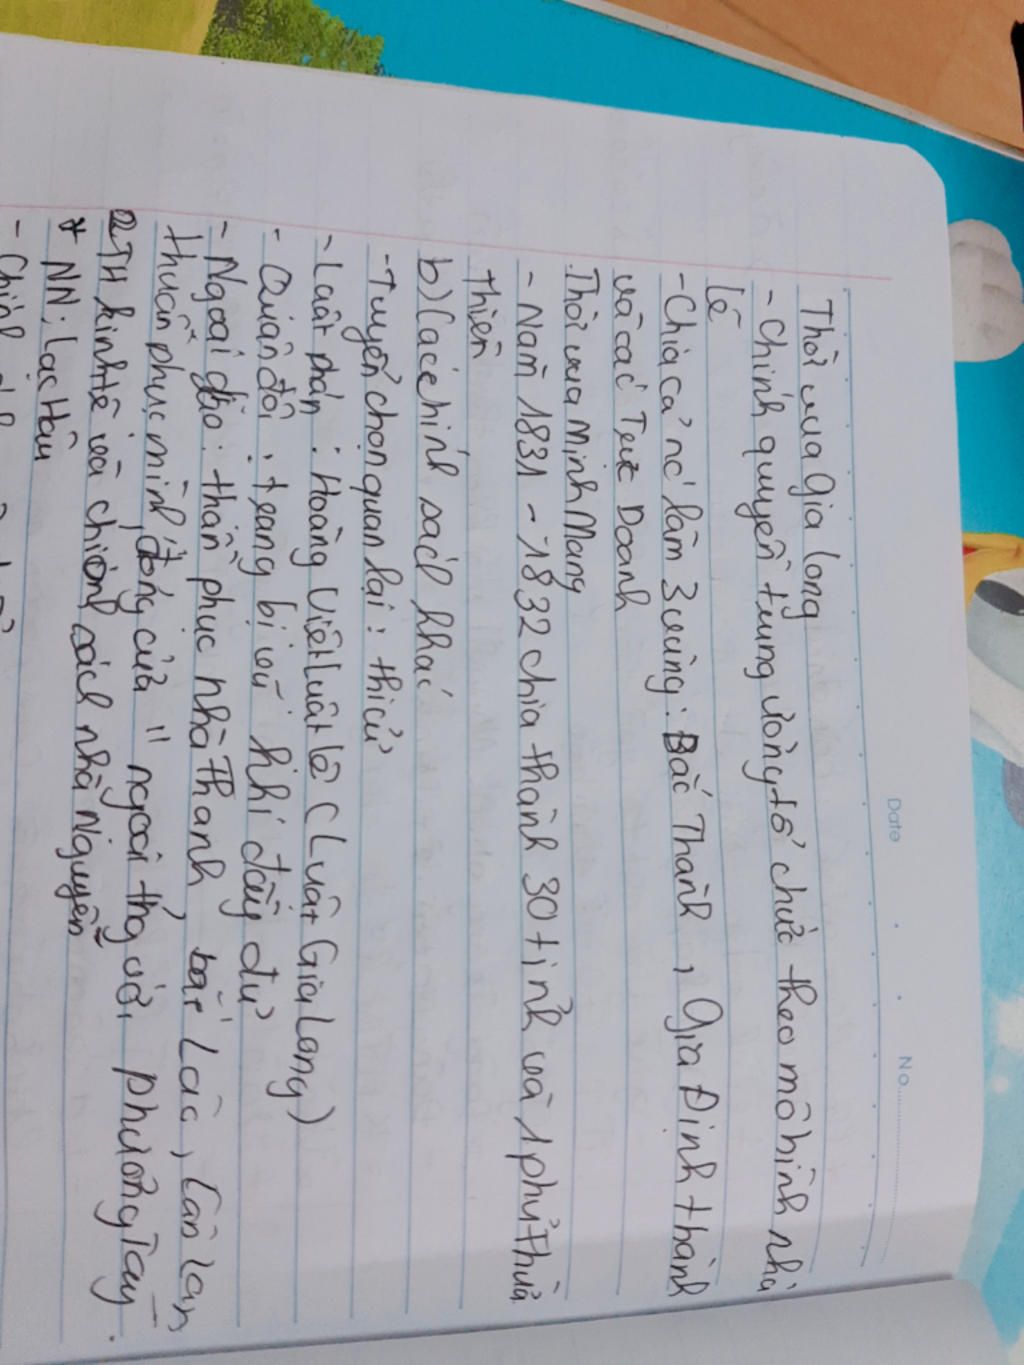 Date No.
Thời vua Gia Long
- Chính quyền trung ương tổ chức theo mô hình nhà
Lê
- Chia cả nc' làm 3 vùng: Bắc Thành, Gia Định thành
và các Trực Doanh
Thời vua Minh Mạng
- Năm 1831 - 1832 chia thành 30 tỉnh và 1 phủ Thừa
Thiên
b) Các chính sách khác
- Tuyển chọn quan lại: thi cử
- Luật pháp: Hoàng Việt luật lệ (Luật Gia Long)
- Quân đội: trang bị vũ khí đầy đủ
- Ngoại giao: thần phục nhà Thanh, bắt Lào, Cao Lan
thuần phục mình, đóng cửa " ngoại thg với phương Tây.
2 TH kinh tế và chính sách nhà Nguyễn
* NN: lạc Hậu
- Chính